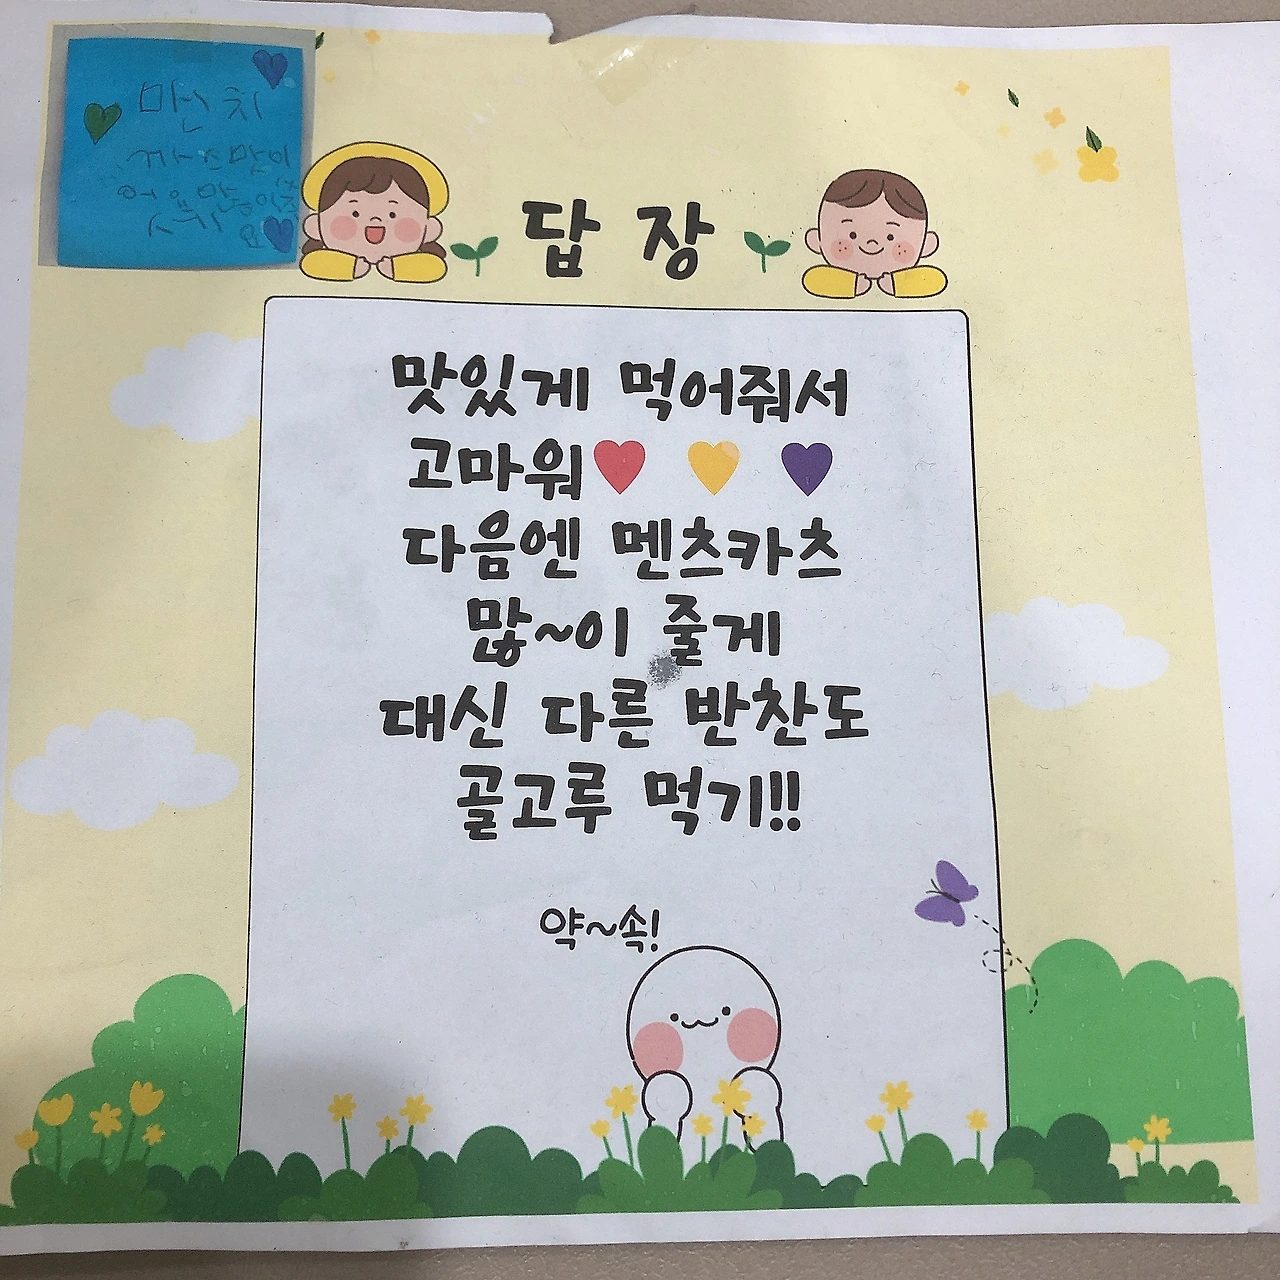 맨치
까스많이
답장
맛있게 먹어줘서
고마워
다음엔 멘츠카츠
많~이 줄게
대신 다른 반찬도
골고루 먹기!!
약~속!